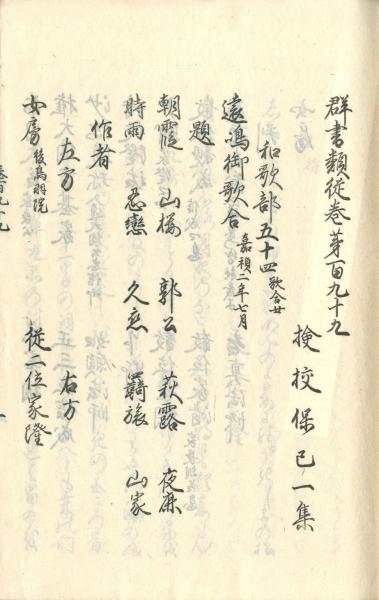 群書類従巻第百九十九
検挍保己一集
和歌部五十四歌合廿
遠嶋御歌合嘉禎二年七月
題
朝霞 山桜 郭公 萩露 夜鹿
時雨 忍戀 久恋 羇旅 山家
作者
左方 右方
女房後鳥羽院 従二位家隆